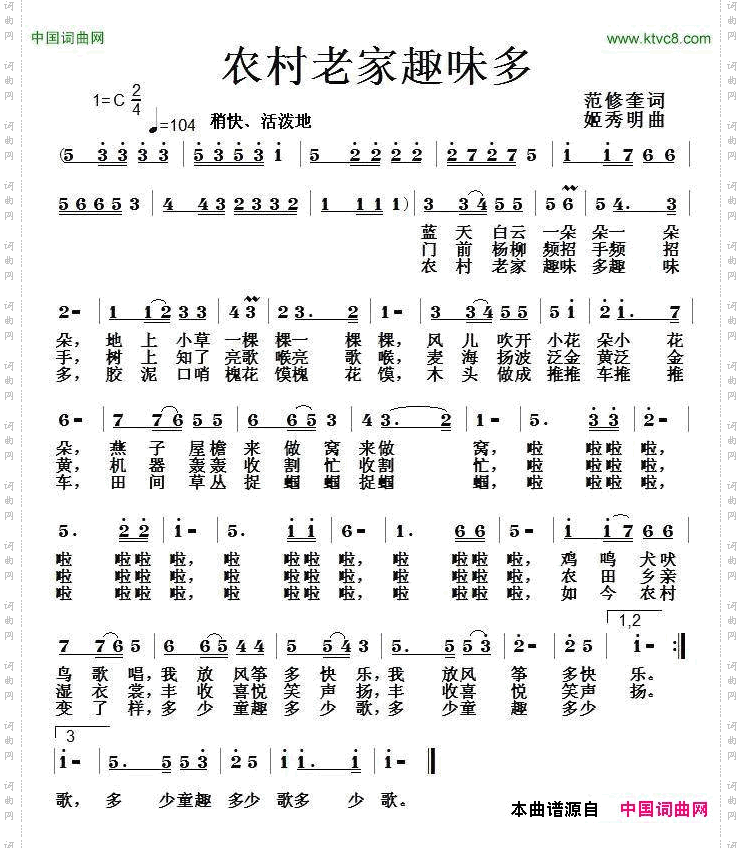 中国词曲网 www.ktvc8.com
农村老家趣味多
1=C 2/4 ♩=104 稍快、活泼地
范修奎词
姬秀明曲
(5 3 3 3 3 | 5 3 5 3 1 | 5 2 2 2 2 | 2 7 2 7 5 | 1 1 7 6 7 |
5 6 6 5 3 | 4 4 3 2 3 3 2 | 1 1 1 1) | 3 3 4 5 5 | 5 6 | 5 4. 3 |
蓝 天 白云 一朵 朵一 朵
门 前 杨柳 频招 手频 招
农 村 老家 趣味 多趣 味
2- | 1 1 2 3 3 | 4 3 | 2 3. 2 | 1- | 3 3 4 5 5 | 5 1 | 2 1. 7 |
朵，地 上 小草 一棵 棵一 棵棵，风 儿 吹开 小花 朵小 花
手，树 上 知了 亮歌 喉亮 歌喉，麦 海 扬波 泛金 黄泛 金
多，胶 泥 口哨 槐花 馍槐 花馍，木 头 做成 推推 车推 推
6- | 7 7 6 5 5 | 6 6 5 3 | 4 3. 2 | 1- | 5. 3 3 | 2- |
朵，燕 子 屋檐 来 做 窝 来做 窝，啦 啦啦 啦，
黄，机 器 轰轰 收 割 忙 收割 忙，啦 啦啦 啦，
车，田 间 草丛 捉 蝈 蝈 捉蝈 蝈，啦 啦啦 啦，
5. 2 2 | 1- | 5. 1 1 | 6- | 1. 6 6 | 5- | 1 1 7 6 6 |
啦 啦啦 啦，啦 啦啦 啦，啦 啦啦 啦，鸡 鸣 犬吠
啦 啦啦 啦，啦 啦啦 啦，啦 啦啦 啦，农 田 乡亲
啦 啦啦 啦，啦 啦啦 啦，啦 啦啦 啦，如 今 农村
1,2
7 7 6 5 | 6 6 5 4 4 | 5 5 4 3 | 3. 5 5 3 | 2- | 2 5 | 1- :||
鸟 歌 唱，我 放 风筝 多 快 乐，我 放风 筝 多快 乐。
湿 衣 裳，丰 收 喜悦 笑 声 扬，丰 收喜 悦 笑声 扬。
变 了 样，多 少 童趣 多 少 歌，多 少童 趣 多少
3
1- | 5. 5 5 5 3 | 2 5 | 1 1. 1 | 1- ||
歌，多 少童趣 多少 歌多 少 歌。
本曲谱源自 中国词曲网